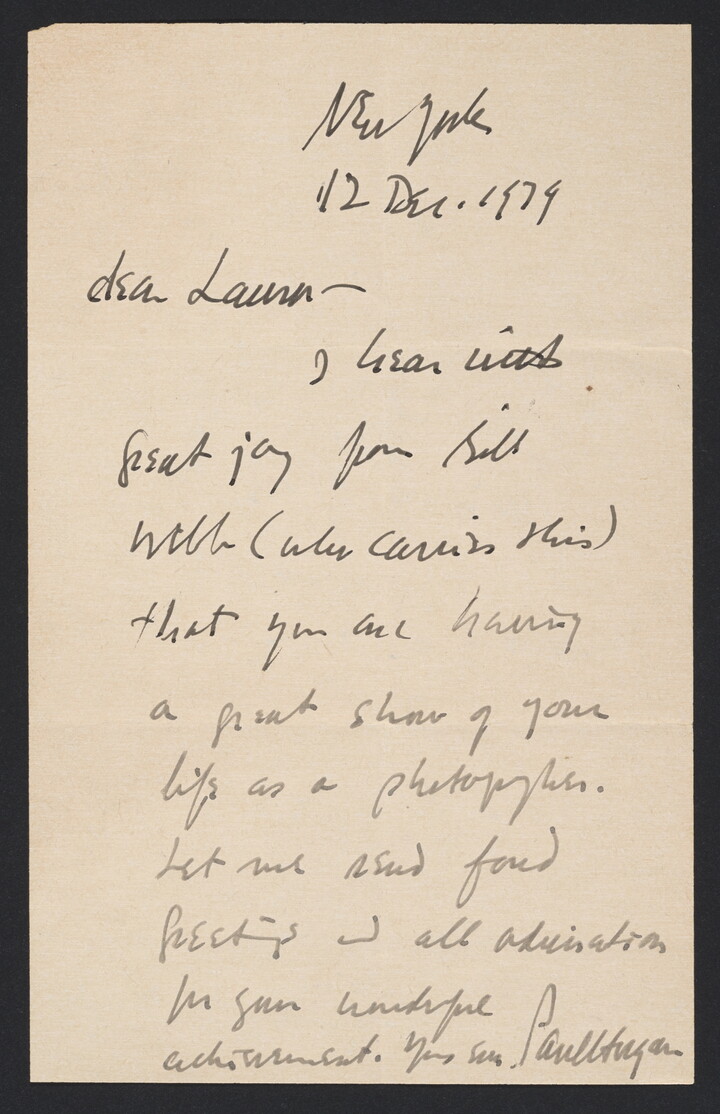 New York
12 Dec. 1979
dear Laura—
I hear with
great joy from Bill
Webb (who carries this)
that you are having
a great show of your
life as a photographer.
Let me send fond
greetings and all admiration
for your wonderful
achievement. Yours ever, Paul Horgan